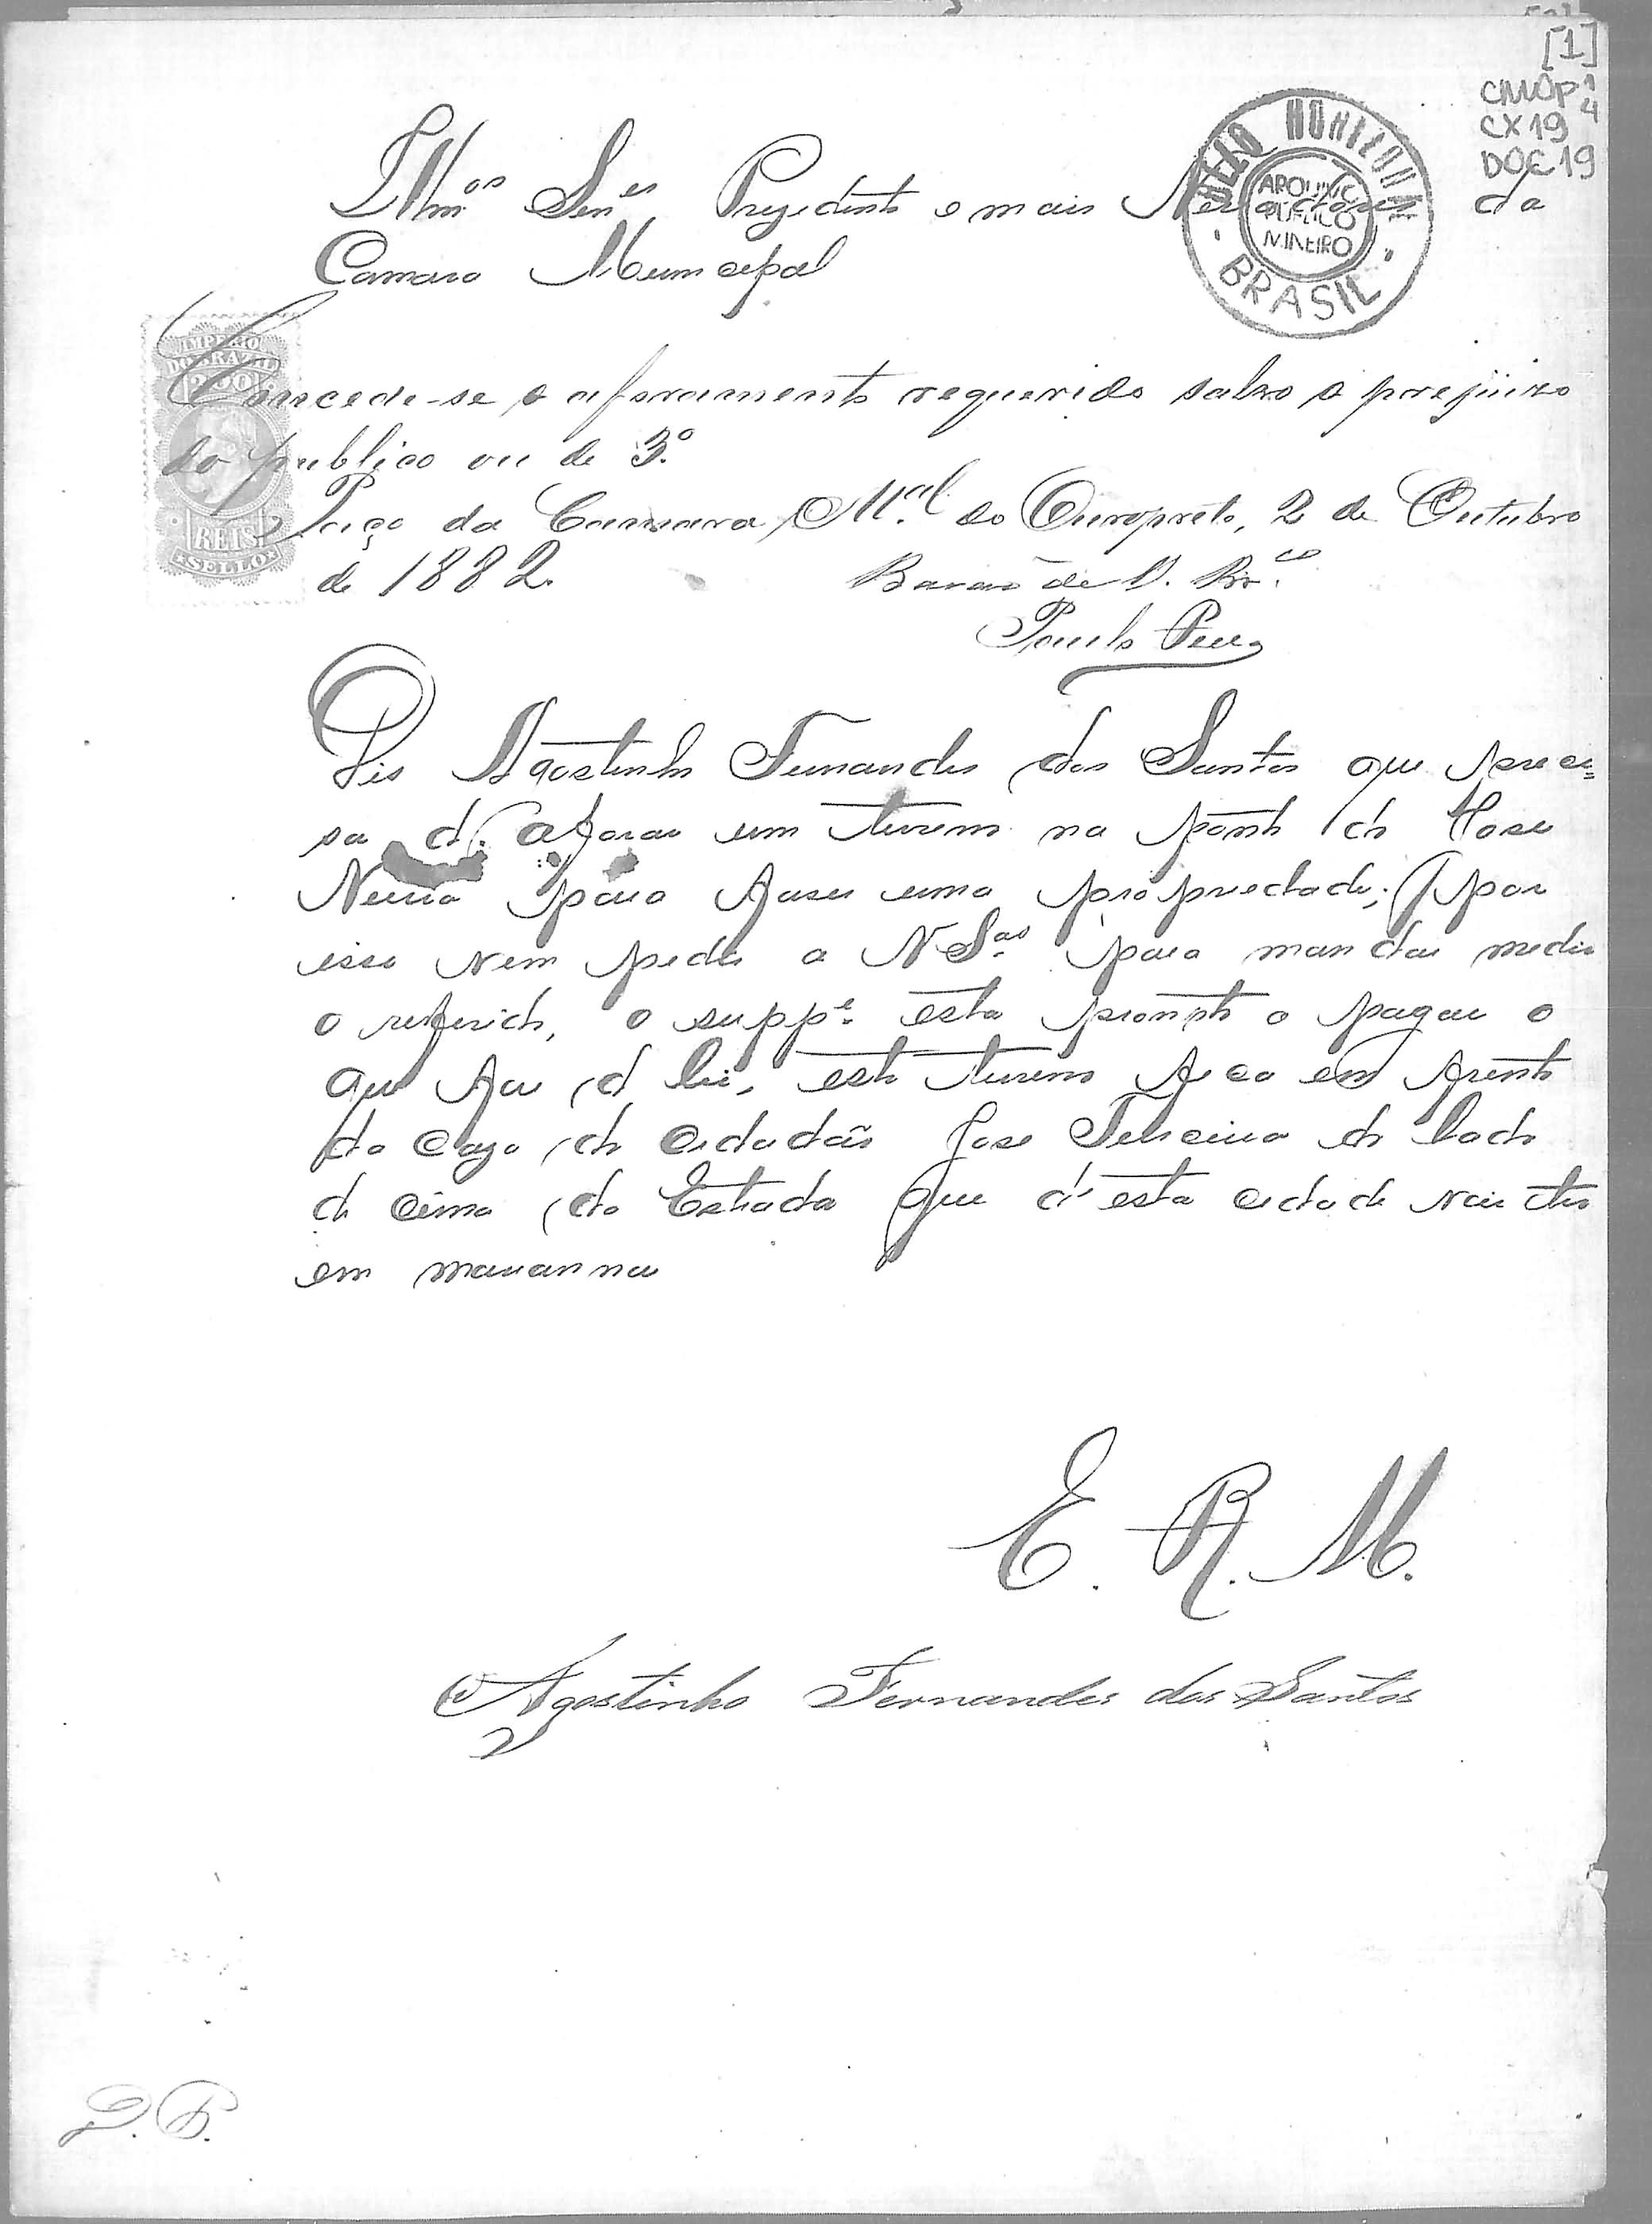 [1]
CMOP 1/4
CX 19
DOC. 19
BELO HORIZONTE
ARQUIVO
PUBLICO
MINEIRO
BRASIL
Illm.os Sen.es Prezidente e mais Veriadores da
Camara Municipal
IMPERIO
DO BRAZIL
200
REIS
SELLO
Concede-se o aforamento requerido salvo o prejuizo
do publico ou de 3.º
Paço da Camara M.al do Ouropreto, 2 de Outubro
de 1882.
Barão de V.
Paulo
Dis Agostinho Fernandes dos Santos que preci=
sa de aforar um tereno na ponte do
para faser uma propriedade; por
isso vem pedir a V S.as para mandar medir
o referido, o supp.e esta prompto a pagar o
que for de lei, este tereno fica em frente
da caza do cidadão Jose Teixeira do lado
de cima da Estrada que d'esta cidade vai ter
em marianna
E. R. M.
Agostinho Fernandes dos Santos
D. P.